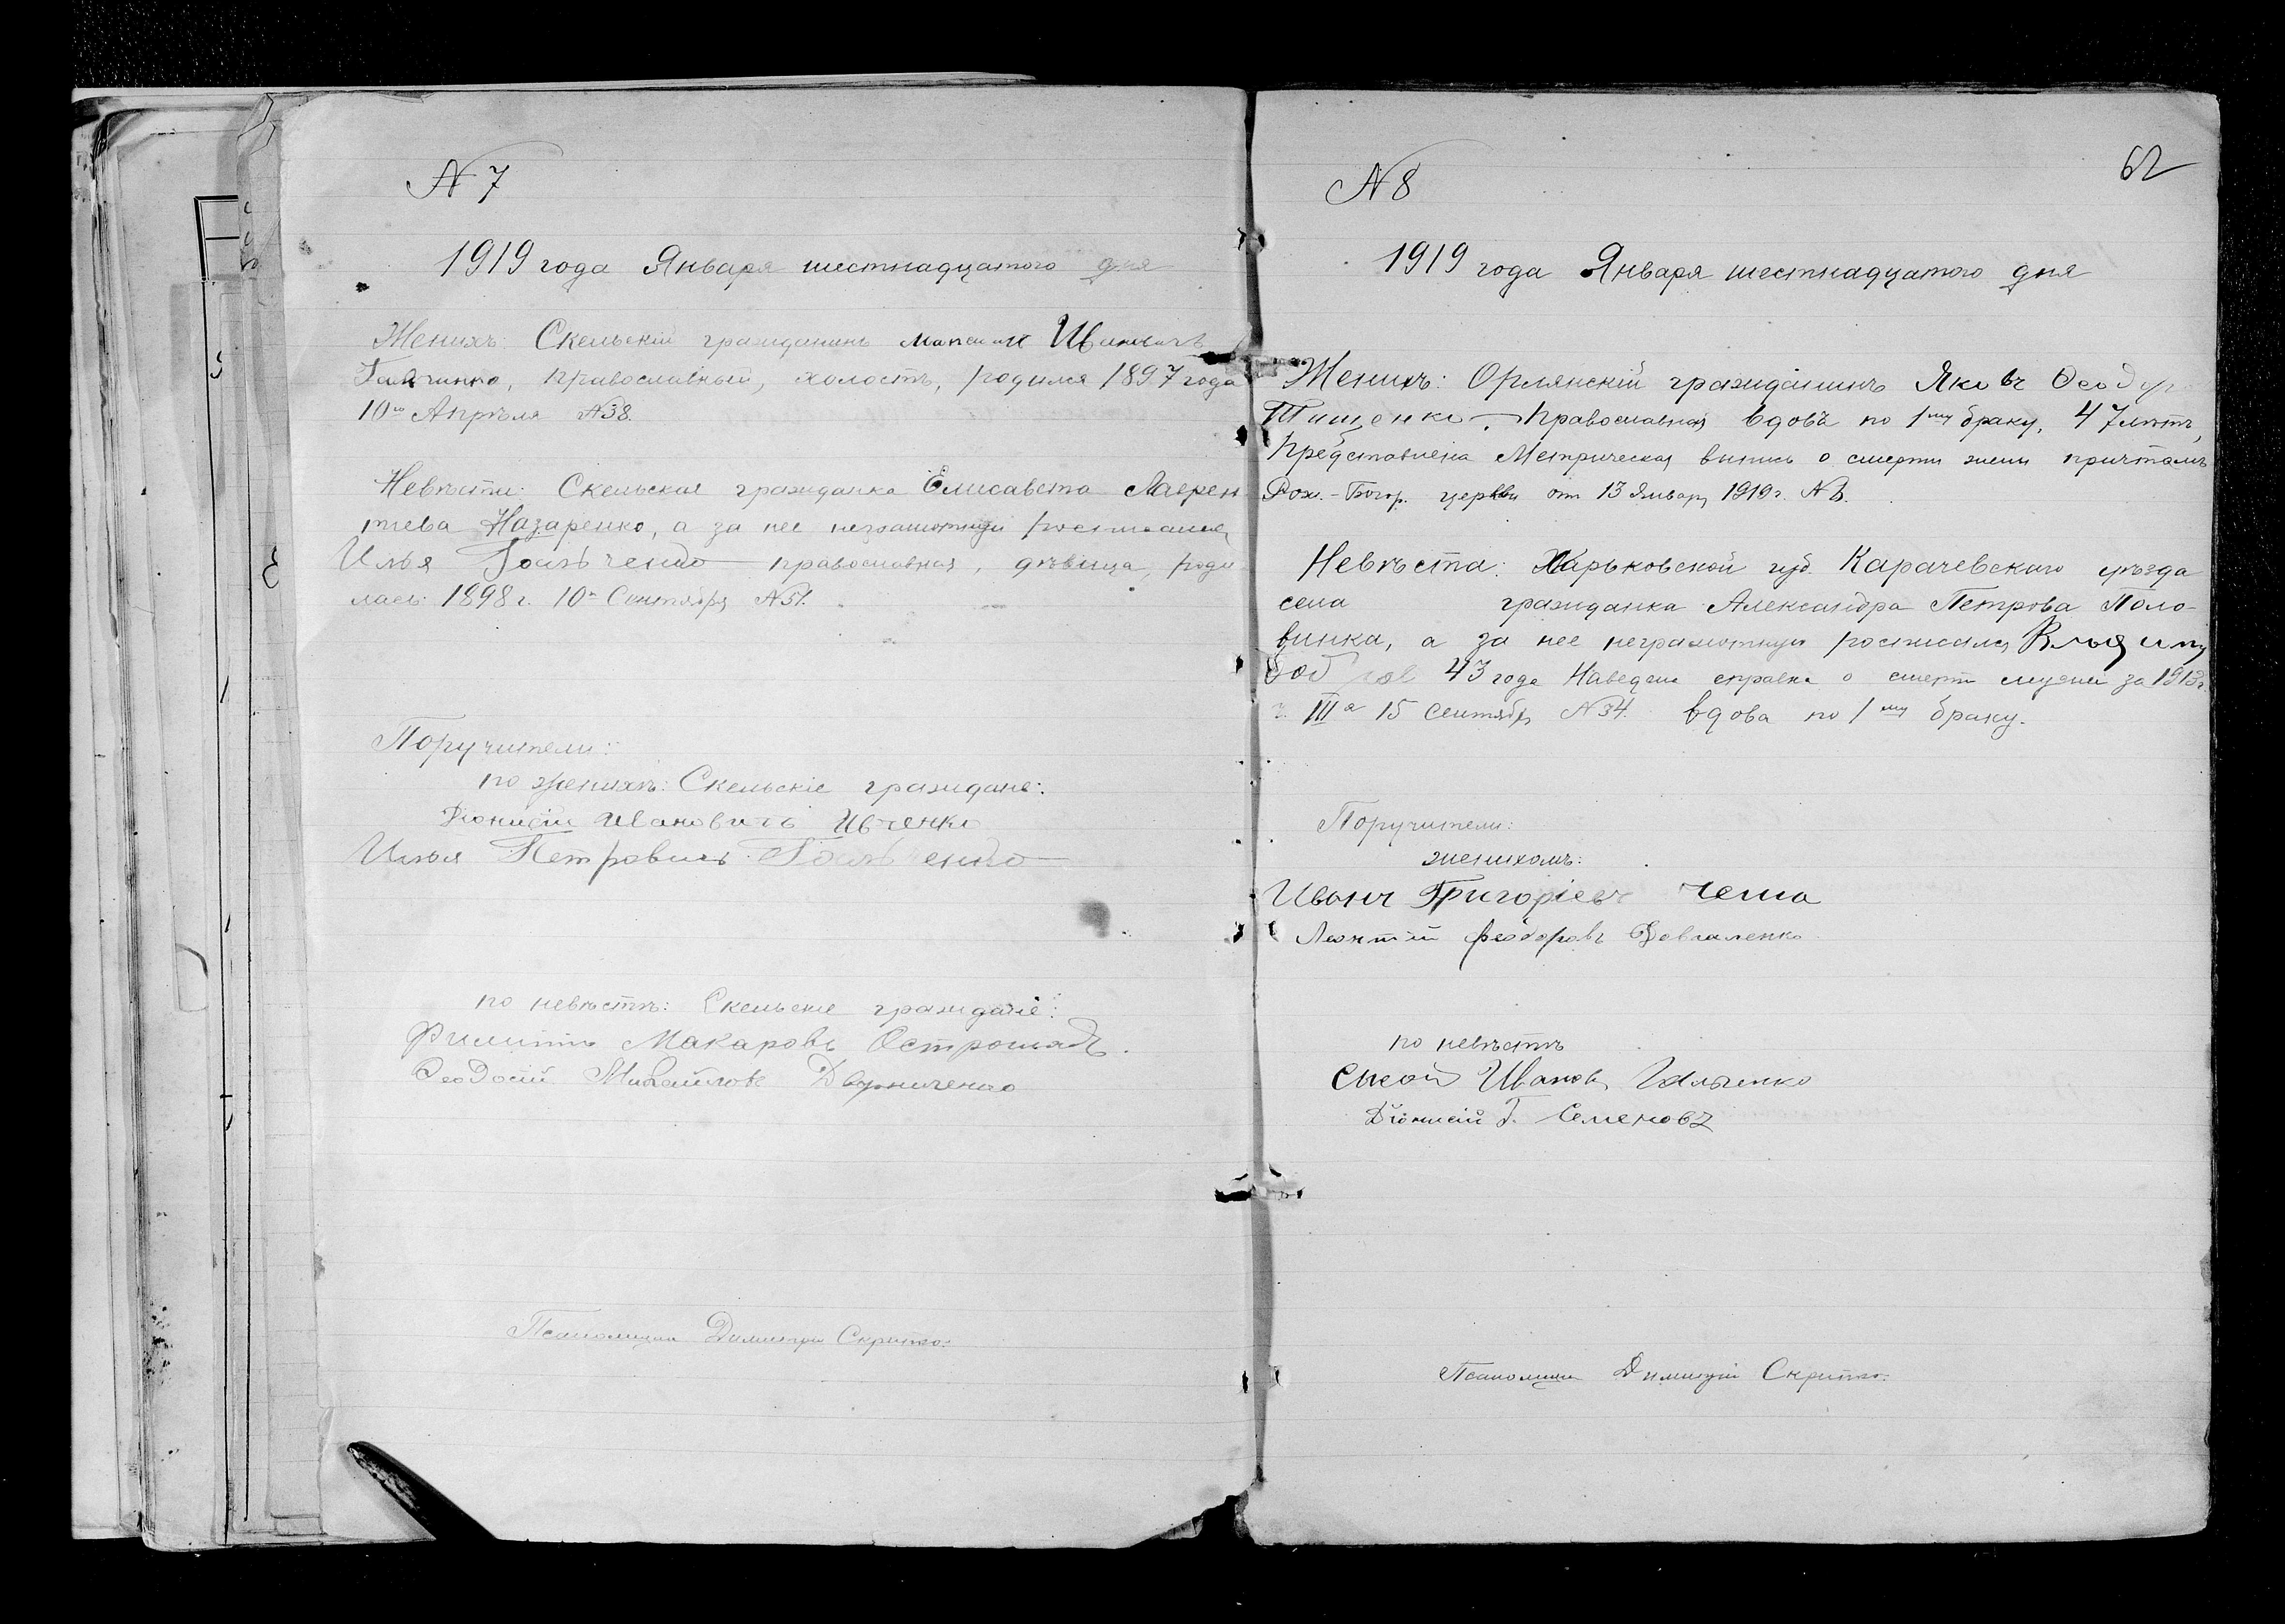 N 7
1919 года Января шестнадцатого дня
Женихъ: Скельскій гражданинъ Максим Ивановичъ
православный, холостъ, родился 1897 года
10го Апрѣля N38.
Невѣста: Скельская гражданка Елисавета Лаврен
тіева Назаренко, а за нее неграмотную росписался
Илья Гальченко православная, дѣвица, роди
лась 1898 г. 10го Сентября N51.
Поручители:
по женихѣ: Скельскіе граждане:
Діонисій Ивановичъ Ивченко
Илья Петровичъ Гальченко
по невѣстѣ: Скельскіе граждане:
Филиппъ Макаровъ
Ѳеодосій Михайловъ Дворниченко
Псаломщик Димитрій Скрипко.
62
N 8
1919 года Января шестнадцатого дня
Женихъ: Орлянскій гражданинъ Яковъ Ѳеодор
Тищенко. Православный вдовъ по 1му браку, 47 лѣтъ,
Представлена Метрическая выпись о смерти жены причтомъ
Рож.-Богор. церкви от 13 Января 1919 г. N
Невѣста: Харьковской губ. Карачевского уѣзда
села гражданка Александра Петрова Поло-
винка, а за нее неграмотную росписался
43 года Наведена справка о смерти мужа за
ч. III а 15 Сентября N34. вдова по 1му браку.
Поручители:
женихомъ:
Иванъ Григоріевъ
Леонтій Феодоровъ Довгаленко
по невѣстѣ
Иванов Гальченко
Діонисій Г. Семеновъ
Псаломщик Димитрій Скрипко.